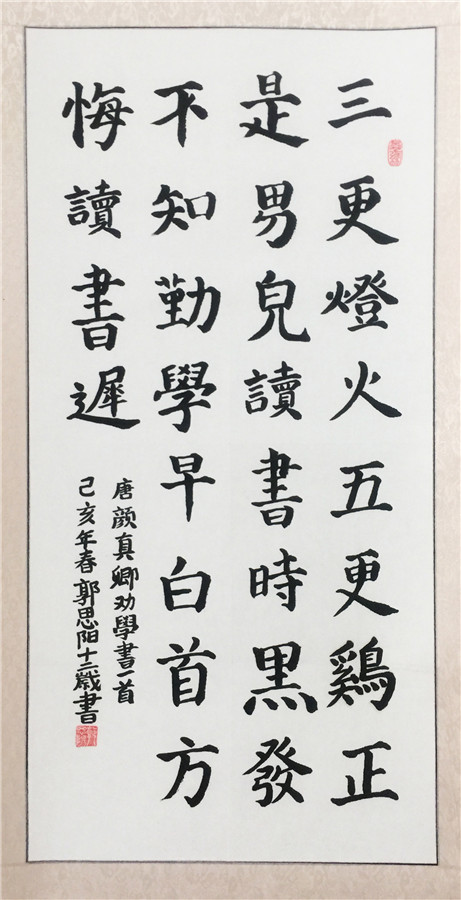 三更燈火五更鷄正
是男兒讀書時黑發
不知勤學早白首方
悔讀書遲
唐顔真卿劝學書一首
己亥年春郭思阳十二歲書